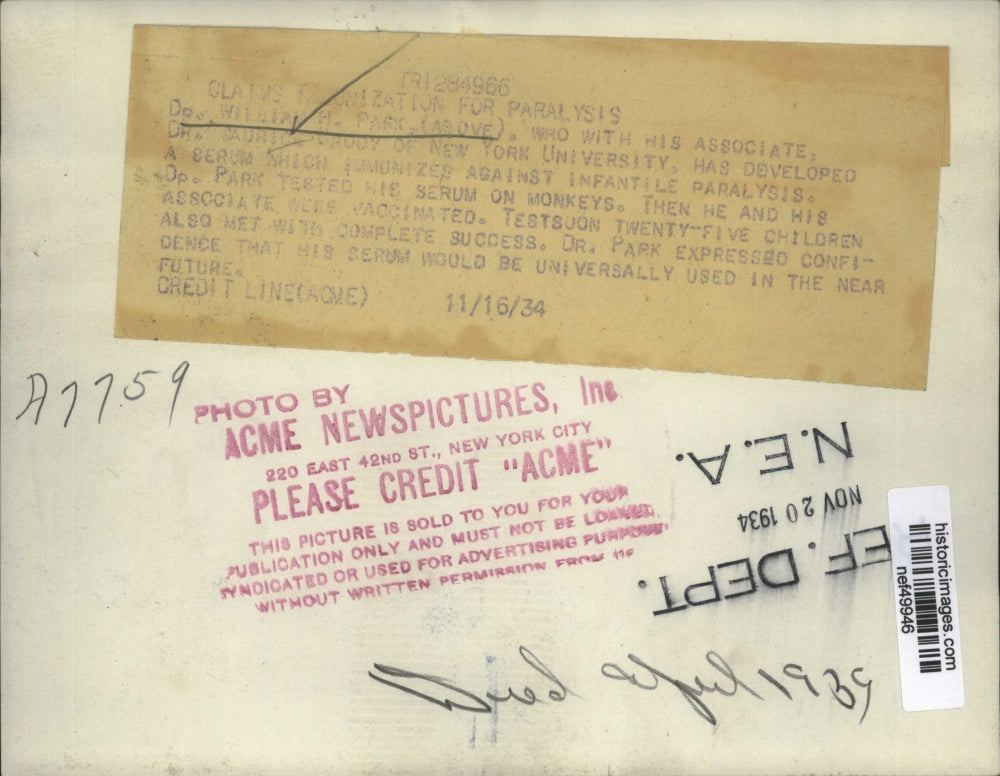 TRI284966
CLAIMS IMMUNIZATION FOR PARALYSIS
DR. WILLIAM H. PARK,(ABOVE), WHO WITH HIS ASSOCIATE,
DR. MAURICE BRODY OF NEW YORK UNIVERSITY, HAS DEVELOPED
A SERUM WHICH IMMUNIZES AGAINST INFANTILE PARALYSIS.
DR. PARK TESTED HIS SERUM ON MONKEYS. THEN HE AND HIS
ASSOCIATE WERE VACCINATED. TESTSOON TWENTY-FIVE CHILDREN
ALSO MET WITH COMPLETE SUCCESS. DR. PARK EXPRESSED CONFI-
DENCE THAT HIS SERUM WOULD BE UNIVERSALLY USED IN THE NEAR
FUTURE.
CREDIT LINE(ACME) 11/16/34
A7759
PHOTO BY
ACME NEWSPICTURES, Inc
220 EAST 42ND ST., NEW YORK CITY
PLEASE CREDIT "ACME"
THIS PICTURE IS SOLD TO YOU FOR YOUR
PUBLICATION ONLY AND MUST NOT BE LOANED,
SYNDICATED OR USED FOR ADVERTISING PURPOSES
WITHOUT WRITTEN PERMISSION FROM US
N.E.A.
NOV 20 1934
EF. DEPT.
historicimages.com
nef49946
Died 1939